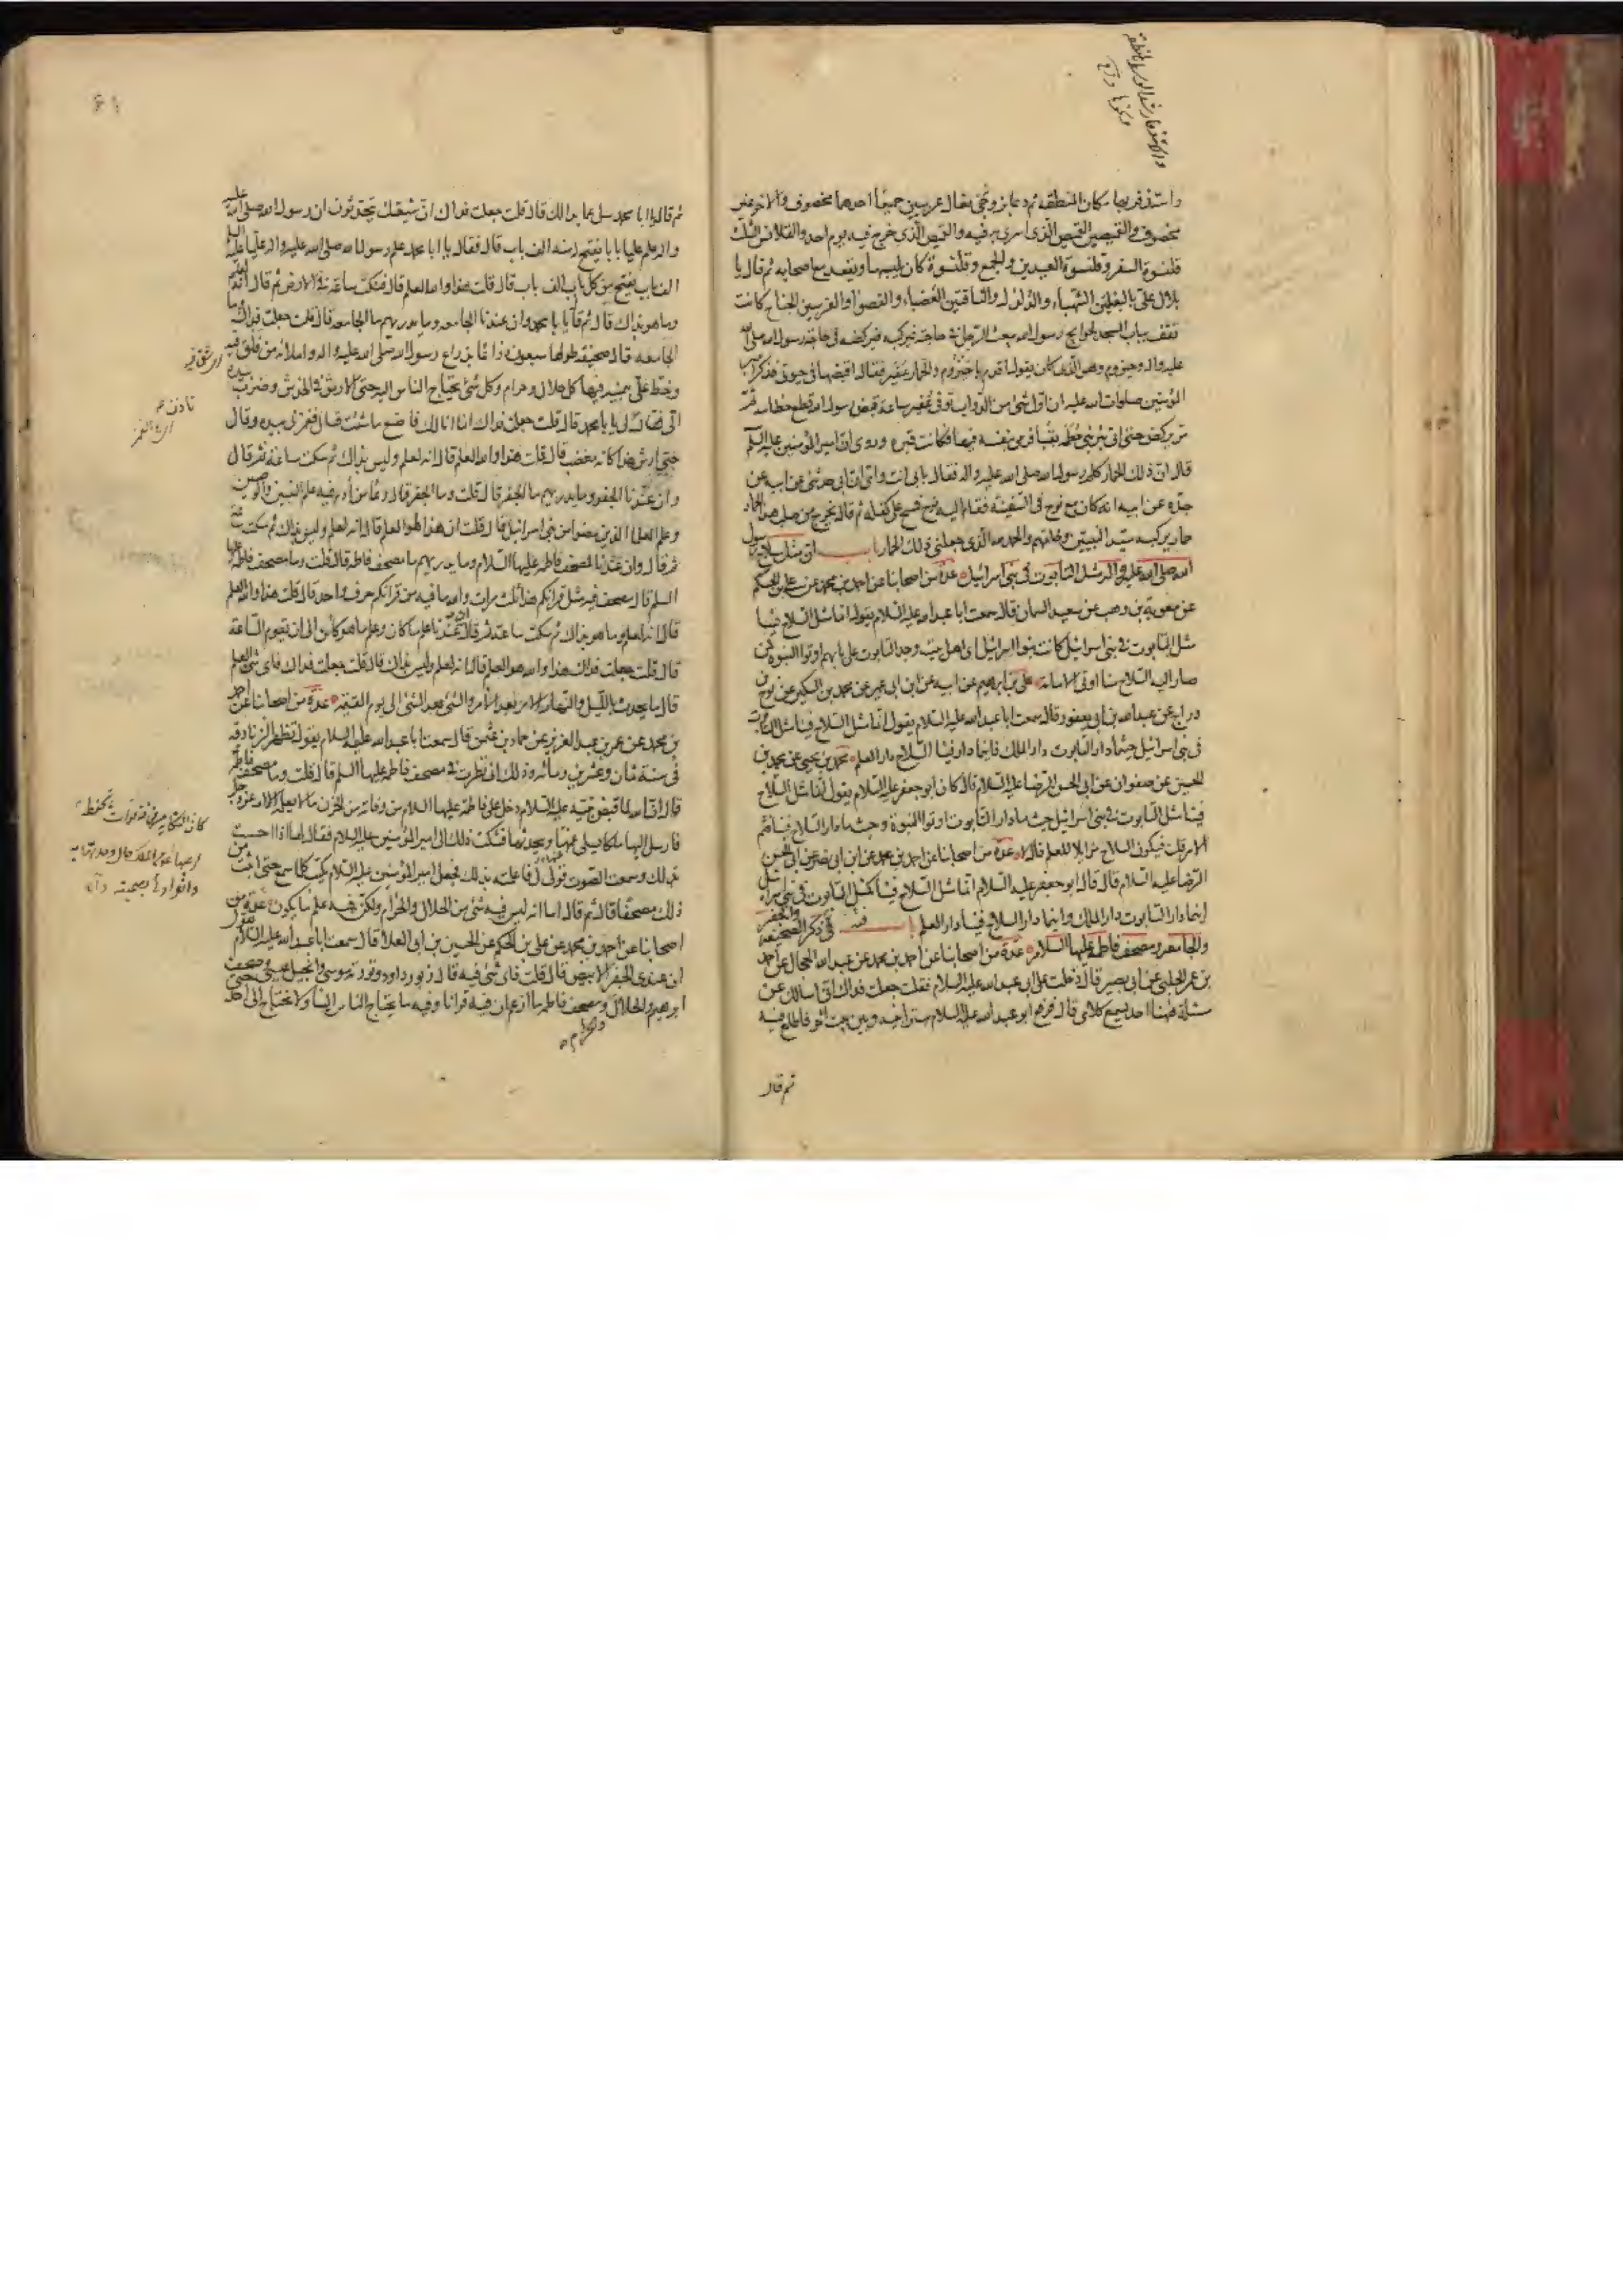 واستذفر بها مكان المنطقة ثم دعا بزوجي نعال عربيين جميعا احدهما مخصوف والاخر غير
مخصوف والقميصين القميص الذى اسرى به فيه والقميص الذى خرج فيه يوم احد والقلانس الثلث
قلنسوة السفر وقلنسوة العيدين والجمع وقلنسوة كان يلبسها ويقعد مع اصحابه ثم قال يا
بلال على بالبغلتين الشهباء والدلدل والناقتين العضباء والقصوا والفرسين الجناح كانت
توقف بباب المسجد لحوايج رسول الله يبعث الرجل فى حاجته فيركبه فيركضه فى حاجة رسول الله صلى الله
عليه واله وحيزوم وهو الذى كان يقول اقدم يا حيزوم والحمار عفير فقال اقبضها فى حيوتى فذكر امير
المؤمنين صلوات الله عليه ان اول شئ من الدواب توفى عفير ساعة قبض رسول الله قطع خطامه ثم
مر يركض حتى اتى بئر بنى خطمه بقبا فرمى بنفسه فيها فكانت قبره وروى ان امير المؤمنين عليه السلم
قال ان ذلك الحمار كلم رسول الله صلى الله عليه واله فقال بابى انت وامى ان ابى حدثنى عن ابيه عن
جده عن ابيه انه كان مع نوح فى السفينة فقام اليه نوح فمسح على كفله ثم قال يخرج من صلب هذا الحمار
حمار يركبه سيد النبيين وخاتمهم والحمد لله الذى جعلنى ذلك الحمار باب ان مثل سلاح رسول
الله صلى الله عليه واله مثل التابوت فى بنى اسرائيل عدة من اصحابنا عن احمد بن محمد عن على بن الحكم
عن معوية بن وهب عن سعيد السمان قال سمعت ابا عبد الله عليه السلام يقول انما مثل السلاح فينا
مثل التابوت فى بنى اسرائيل كانت بنوا اسرائيل اى اهل بيت وجد التابوت على بابهم اوتوا النبوة فمن
صار اليه السلاح منا اوتى الامامة على بن ابرهيم عن ابيه عن ابن ابى عمير عن محمد بن السكين عن نوح بن
دراج عن عبد الله بن ابى يعفور قال سمعت ابا عبد الله عليه السلام يقول انما مثل السلاح فينا مثل التابوت
فى بنى اسرائيل حيثما دار التابوت دار الملك فاينما دار فينا السلاح دار العلم محمد بن يحيى عن محمد بن
الحسين عن صفوان عن ابى الحسن الرضا عليه السلام قال كان ابو جعفر عليه السلام يقول انما مثل السلاح
فينا مثل التابوت فى بنى اسرائيل حيثما دار التابوت اوتوا النبوة وحيثما دار السلاح فينا فثم
الامر قلت فيكون السلاح مزايلا للعلم قال لا عدة من اصحابنا عن احمد بن محمد عن ابن ابى نصر عن ابى الحسن
الرضا عليه السلام قال قال ابو جعفر عليه السلام انما مثل السلاح فينا كمثل التابوت فى بنى اسرائيل
اينما دار التابوت دار الملك واينما دار السلاح فينا دار العلم باب فيه فى ذكر الصحيفة والجفر
والجامعة ومصحف فاطمة عليها السلام عدة من اصحابنا عن احمد بن محمد عن عبد الله الحجال عن احمد
بن عمر الحلبى عن ابى بصير قال دخلت على ابى عبد الله عليه السلام فقلت جعلت فداك انى اسالك عن
مسئلة ههنا احد يسمع كلامى قال فرفع ابو عبد الله عليه السلام سترا بينه وبين بيت اخر فاطلع فيه
ثم قال
ثم قال يا ابا محمد سل عما بدا لك قال قلت جعلت فداك ان شيعتك يتحدثون ان رسول الله صلى الله عليه
واله علم عليا بابا يفتح له منه الف باب قال فقال يا ابا محمد علم رسول الله صلى الله عليه واله عليا عليه السلم
الف باب يفتح من كل باب الف باب قال قلت هذا والله العلم قال فنكت ساعة فى الارض ثم قال انه لعلم
وما هو بذاك قال ثم قال يا ابا محمد وان عندنا الجامعه وما يدريهم ما الجامعه قال قلت جعلت فداك وما
الجامعه قال صحيفة طولها سبعون ذراعا بذراع رسول الله صلى الله عليه واله واملائه من فلق فيه
وخط على بيمينه فيها كل حلال وحرام وكل شئ يحتاج الناس اليه حتى الارش فى الخدش وضرب بيده
الى فقال لى يا ابا محمد قال قلت جعلت فداك انما انا لك فاصنع ما شئت قال فغمزنى بيده وقال
حتى ارش هذا كانه مغضب قال قلت هذا والله العلم قال انه لعلم وليس بذاك ثم سكت ساعة ثم قال
وان عندنا الجفر وما يدريهم ما الجفر قال قلت وما الجفر قال وعا من أدم فيه علم النبيين والوصيين
وعلم العلما الذين مضوا من بنى اسرائيل قال قلت ان هذا لهو العلم قال انه لعلم وليس بذاك ثم سكت ساعة
ثم قال وان عندنا لمصحف فاطمه عليها السلام وما يدريهم ما مصحف فاطمه قال قلت وما مصحف فاطمه عليها
السلم قال مصحف فيه مثل قرآنكم هذا ثلث مرات والله ما فيه من قرآنكم حرف واحد قال قلت هذا والله العلم
قال انه لعلم وما هو بذاك ثم سكت ساعة ثم قال ان عندنا علم ما كان وعلم ما هو كائن الى ان تقوم الساعة
قال قلت جعلت فداك هذا والله هو العلم قال انه لعلم وليس بذاك قال قلت جعلت فداك فاى شئ العلم
قال ما يحدث بالليل والنهار الامر بعد الامر والشئ بعد الشئ الى يوم القيمة عدة من اصحابنا عن احمد
بن محمد عن عمر بن عبد العزيز عن حماد بن عثمن قال سمعت ابا عبد الله عليه السلام يقول تظهر الزنادقه
فى سنة ثمان وعشرين ومائه وذلك انى نظرت فى مصحف فاطمه عليها السلم قال قلت وما مصحف فاطمه
قال ان الله لما قبض نبيه عليه السلام دخل على فاطمة عليها السلام من وفاته من الحزن ما لا يعلمه الا الله عز وجل
فارسل اليها ملكا يسلى غمها ويحدثها فشكت ذلك الى امير المؤمنين عليه السلام فقال لها اذا احسست
بذلك وسمعت الصوت قولى لى فاعلمته بذلك فجعل امير المؤمنين عليه السلام يكتب كلما سمع حتى اثبت من
ذلك مصحفا قال ثم قال اما انه ليس فيه شئ من الحلال والحرام ولكن فيه علم ما يكون عدة من
اصحابنا عن احمد بن محمد عن على بن الحكم عن الحسين بن ابى العلا قال سمعت ابا عبد الله عليه السلام يقول
ان عندى الجفر الابيض قال قلت فاى شئ فيه قال زبور داود وتورية موسى وانجيل عيسى وصحف
ابرهيم والحلال والحرام ومصحف فاطمه ما ازعم ان فيه قرانا وفيه ما يحتاج الناس الينا ولا نحتاج الى احد حتى